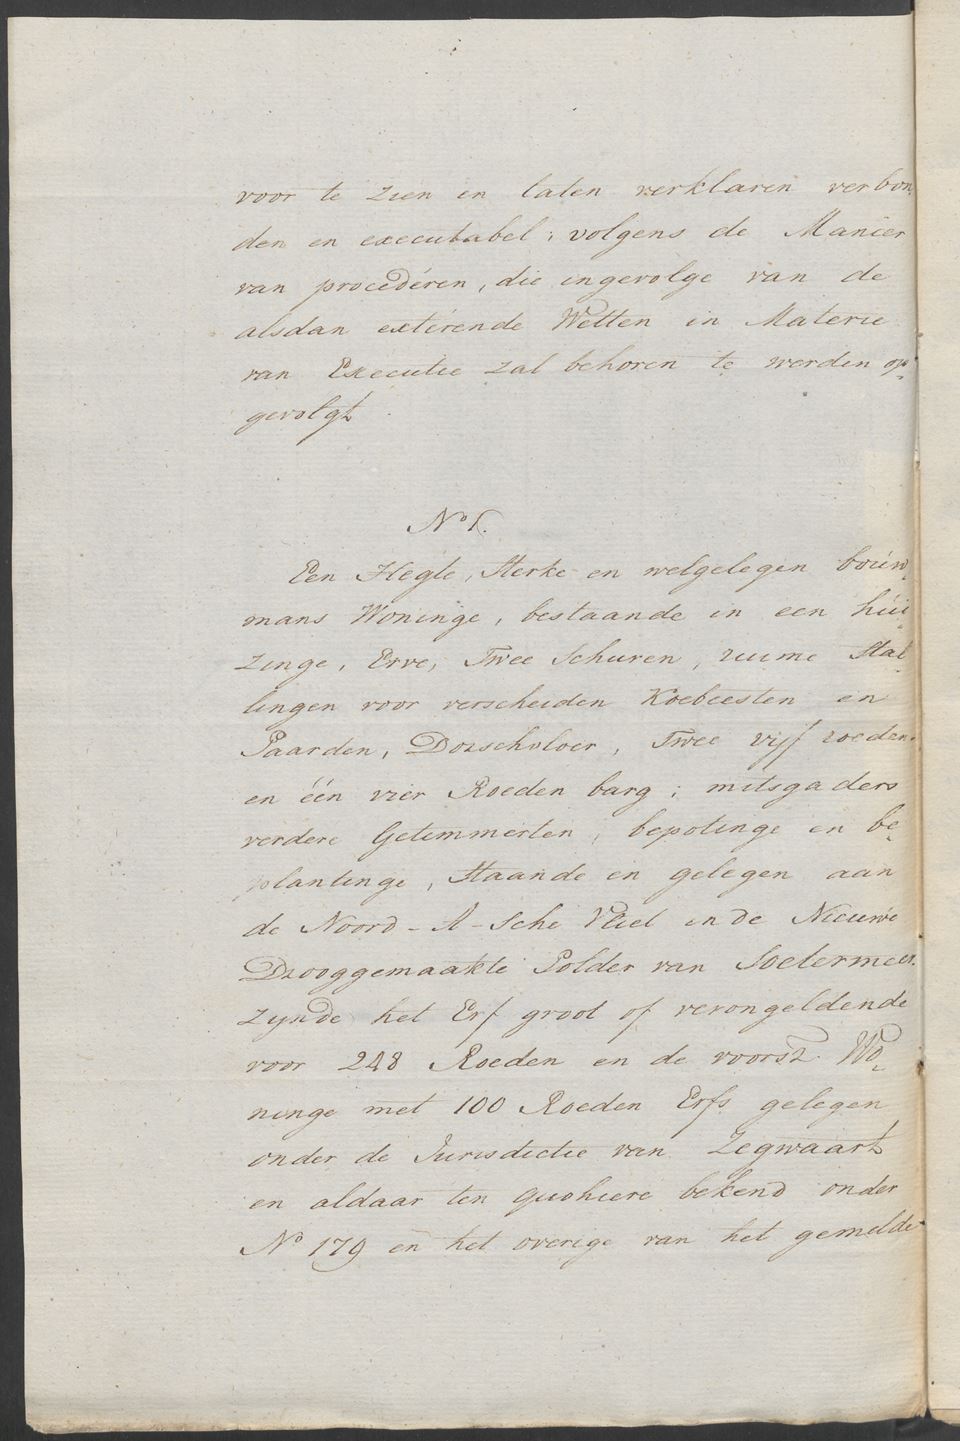 voor te zien en laten verklaren verbon„
den en executabel; volgens de Manier
van procedéren, die ingevolge van de
alsdan exterende Wetten in Materie
van Executie zal behoren te werden op„
gevolgt.
No 1.
Een Hegte, Sterke en welgelegen bouw„
mans Woninge, bestaande in een hui„
zinge, Erve, Twee Schuren, ruime Stal„
lingen voor verscheiden Koebeesten en
Paarden, Dorschvloer, Twee vijf roeden
en één vier Roeden barg; mitsgaders
verdere Getimmerten, bepotinge en be„
plantinge, Staande en gelegen aan
de Noord-A-sche Vliet in de Nieuwe
Drooggemaakte Polder van Soetermeer.
Zynde het Erf groot of verongeldende
voor 248 Roeden en de voorsz. Wo„
ninge met 100 Roeden Erfs gelegen
onder de Jurisdictie van Zegwaart
en aldaar ten quohiere bekend onder
No 179 en het overige van het gemelde